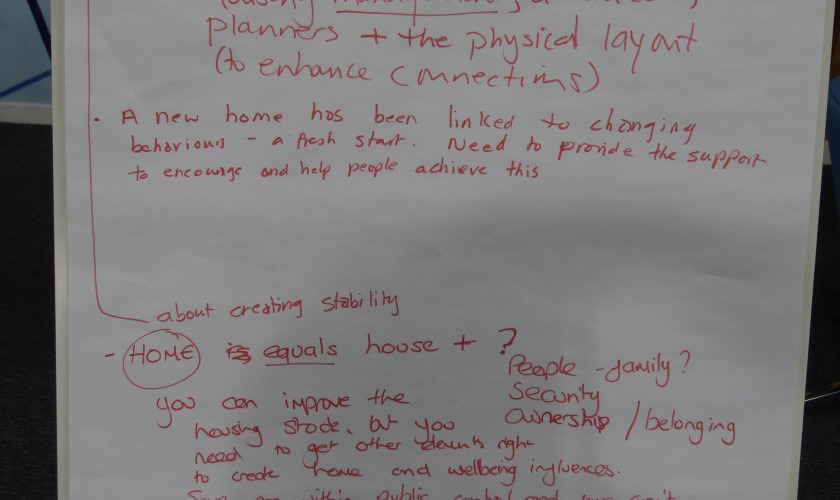 planners + the physical layout
(to enhance connections)
• A new home has been linked to changing
behaviours - a fresh start. Need to provide the support
to encourage and help people achieve this
about creating stability
- HOME is equals house + ?
People - family?
Security
Ownership / belonging
you can improve the
housing stock, but you
need to get other elements right
to create home and wellbeing influences.